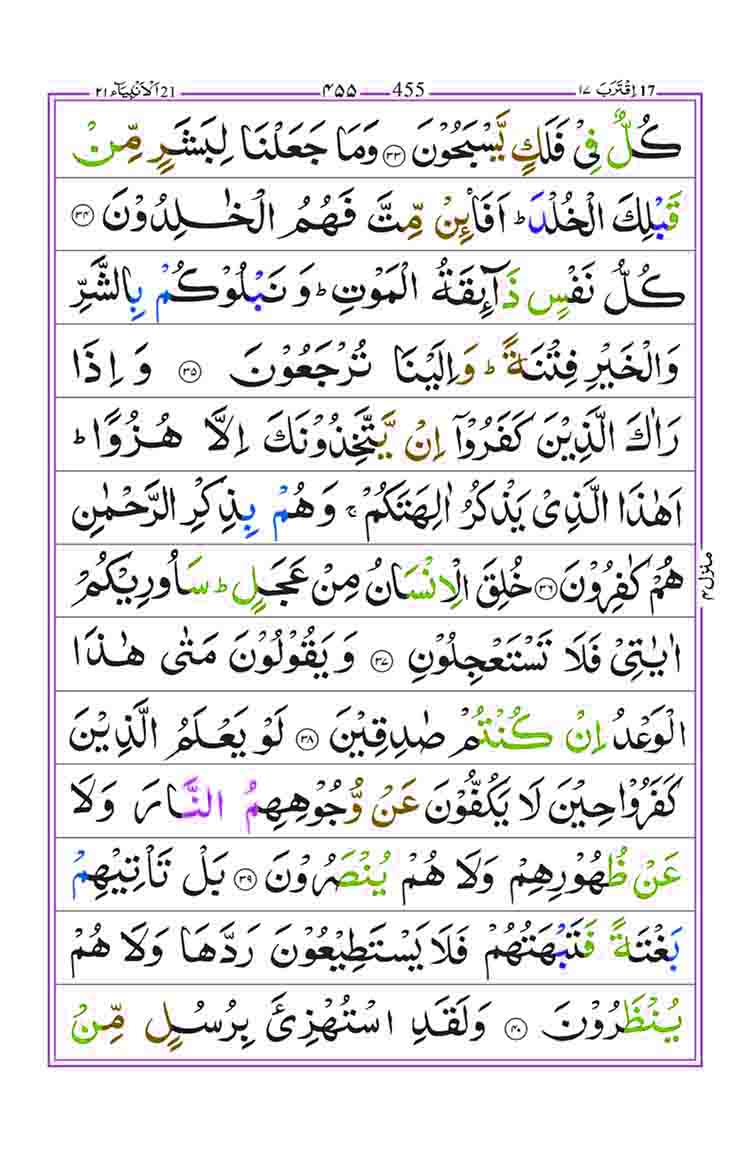 اِقْتَرَبَ ١٧ 17 ۴۵۵ 455 اَلْاَنْۢبِيَآء ٢١ 21
كُلٌّ فِيْ فَلَكٍ يَّسْبَحُوْنَ ۝۳۳ وَمَا جَعَلْنَا لِبَشَرٍ مِّنْ
قَبْلِكَ الْخُلْدَ ؕ اَفَا۟ئِنْ مِّتَّ فَهُمُ الْخٰلِدُوْنَ ۝۳۴
كُلُّ نَفْسٍ ذَآئِقَةُ الْمَوْتِ ؕ وَ نَبْلُوْكُمْ بِالشَّرِّ
وَالْخَيْرِ فِتْنَةً ؕ وَاِلَيْنَا تُرْجَعُوْنَ ۝۳۵ وَ اِذَا
رَاٰكَ الَّذِيْنَ كَفَرُوْۤا اِنْ يَّتَّخِذُوْنَكَ اِلَّا هُزُوًا ؕ
اَهٰذَا الَّذِىْ يَذْكُرُ اٰلِهَتَكُمْ ۚ وَهُمْ بِذِكْرِ الرَّحْمٰنِ
هُمْ كٰفِرُوْنَ ۝۳۶ خُلِقَ الْاِنْسَانُ مِنْ عَجَلٍ ؕ سَاُورِيْكُمْ
اٰيٰتِىْ فَلَا تَسْتَعْجِلُوْنِ ۝۳۷ وَ يَقُوْلُوْنَ مَتٰى هٰذَا
الْوَعْدُ اِنْ كُنْتُمْ صٰدِقِيْنَ ۝۳۸ لَوْ يَعْلَمُ الَّذِيْنَ
كَفَرُوْا حِيْنَ لَا يَكُفُّوْنَ عَنْ وُّجُوْهِهِمُ النَّارَ وَلَا
عَنْ ظُهُوْرِهِمْ وَلَا هُمْ يُنْصَرُوْنَ ۝۳۹ بَلْ تَاْتِيْهِمْ
بَغْتَةً فَتَبْهَتُهُمْ فَلَا يَسْتَطِيْعُوْنَ رَدَّهَا وَلَا هُمْ
يُنْظَرُوْنَ ۝۴۰ وَلَقَدِ اسْتُهْزِئَ بِرُسُلٍ مِّنْ
منزل ۴